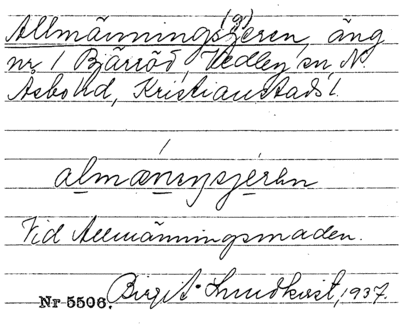 Allmänningsgeren, äng
(g)
nr 1 Bjärröd, Vedby sn, N.
Åsbo hd, Kristianstads l.
Vid Allmänningsmaden.
Nr 5506. Birgit Lundkvist, 1937.